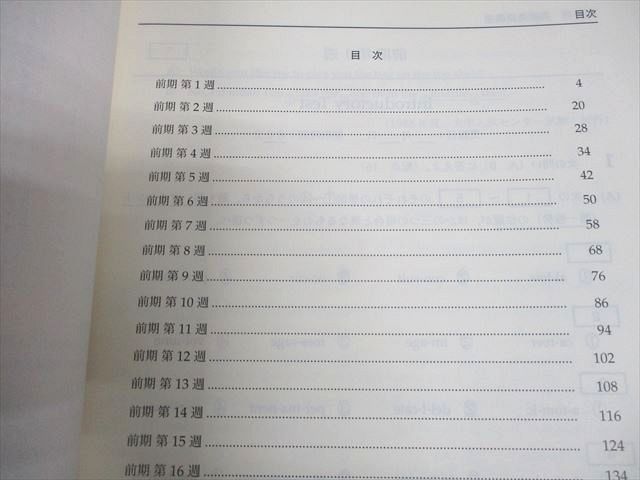 目次
目 次
前期 第1週 4
前期 第2週 20
前期 第3週 28
前期 第4週 34
前期 第5週 42
前期 第6週 50
前期 第7週 58
前期 第8週 68
前期 第9週 76
前期 第10週 86
前期 第11週 94
前期 第12週 102
前期 第13週 108
前期 第14週 116
前期 第15週 124
前期 第16週 134